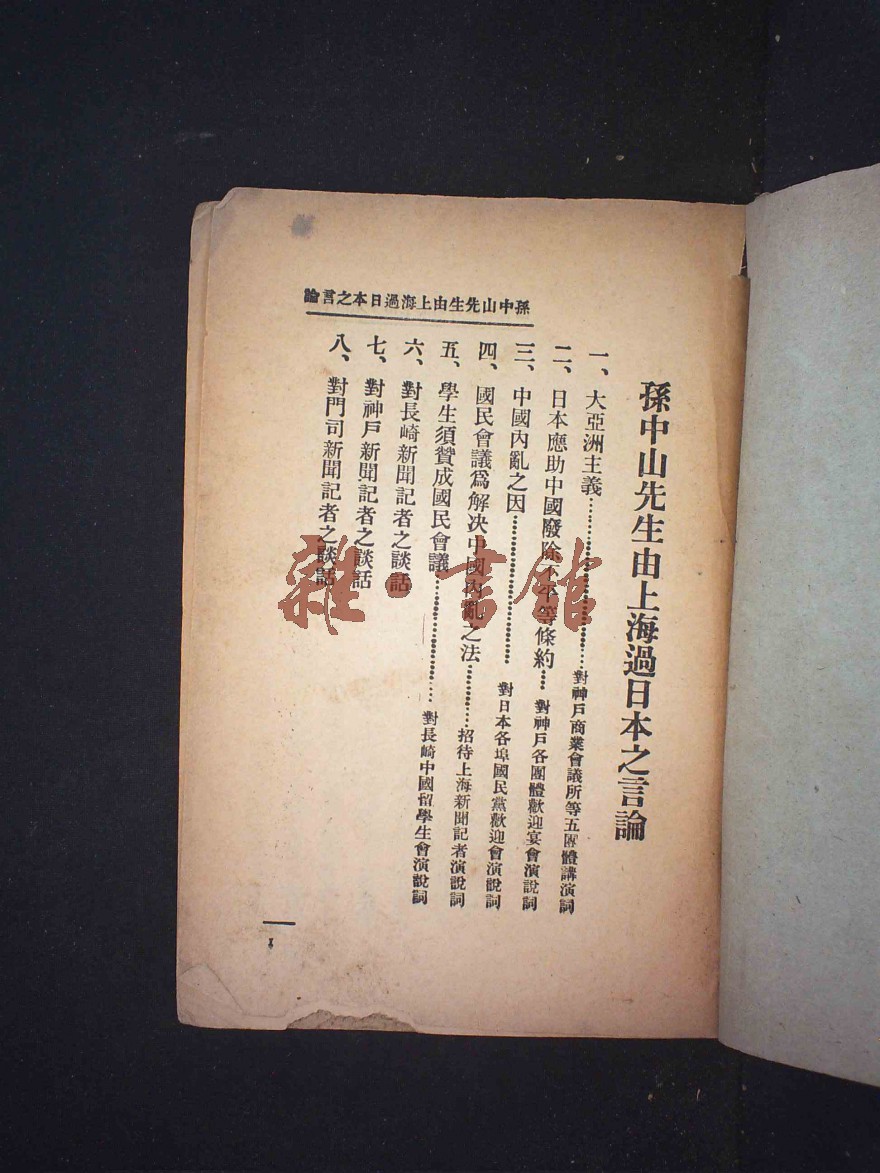 孫中山先生由上海過日本之言論
孫中山先生由上海過日本之言論
一、大亞洲主義……對神戶商業會議所等五團體講演詞
二、日本應助中國廢除不平等條約……對神戶各團體歡迎宴會演說詞
三、中國內亂之因……對日本各埠國民黨歡迎會演說詞
四、國民會議爲解决中國內亂之法……招待上海新聞記者演說詞
五、學生須贊成國民會議……對長崎中國留學生會演說詞
六、對長崎新聞記者之談話
七、對神戶新聞記者之談話
八、對門司新聞記者之談話
1
雜·書館